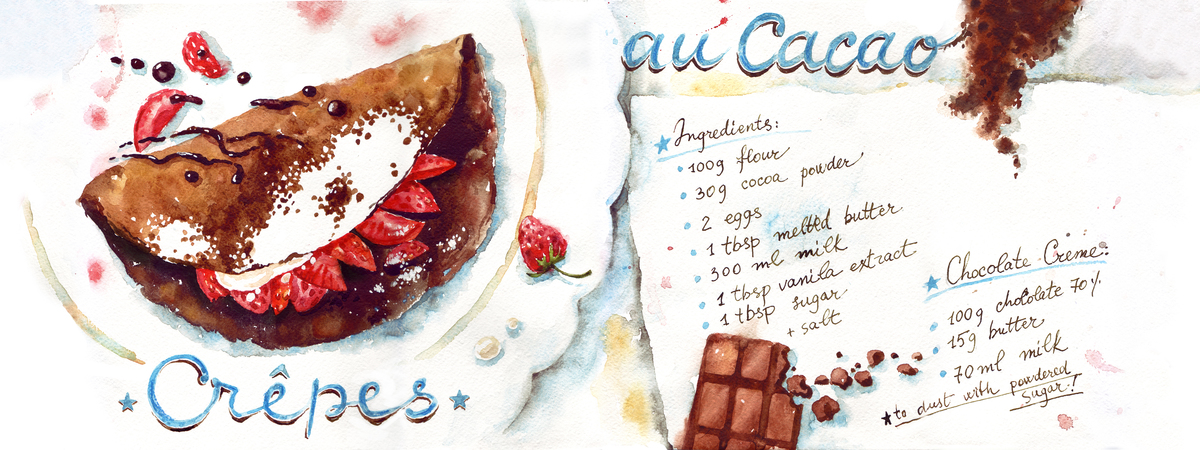 Crêpes
au Cacao
Ingredients:
100g flour
30g cocoa powder
2 eggs
1 tbsp melted butter
300 ml milk
1 tbsp vanilla extract
1 tbsp sugar
+ salt
Chocolate Creme:
100g chocolate 70%
15g butter
70ml milk
to dust with powdered
sugar!